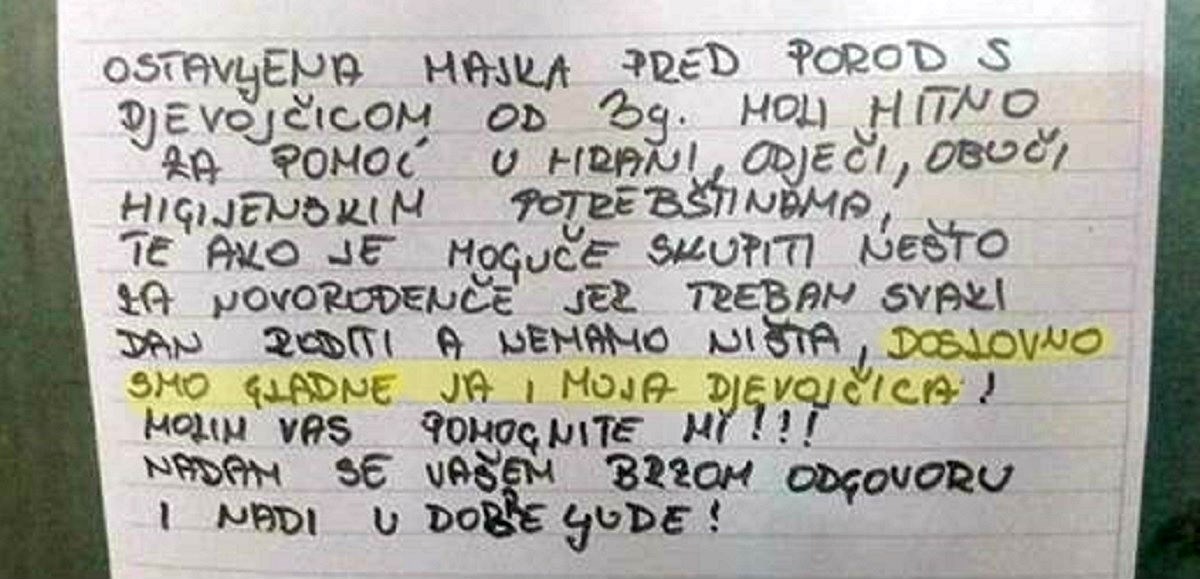 OSTAVLJENA MAJKA PRED POROD S
DJEVOJČICOM OD 3g. MOLI HITNO
ZA POMOĆ U HRANI, ODJEČI, OBUČI
HIGIJENSKIM POTREBŠTINAMA,
TE AKO JE MOGUČE SKUPITI NEŠTO
ZA NOVOROĐENČE JER TREBAM SVAKI
DAN RODITI A NEMAMO NIŠTA, DOSLOVNO
SMO GLADNE JA I MOJA DJEVOJČICA!
MOLIM VAS POMOGNITE MI!!!
NADAM SE VAŠEM BRZOM ODGOVORU
I NADI U DOBRE LJUDE!